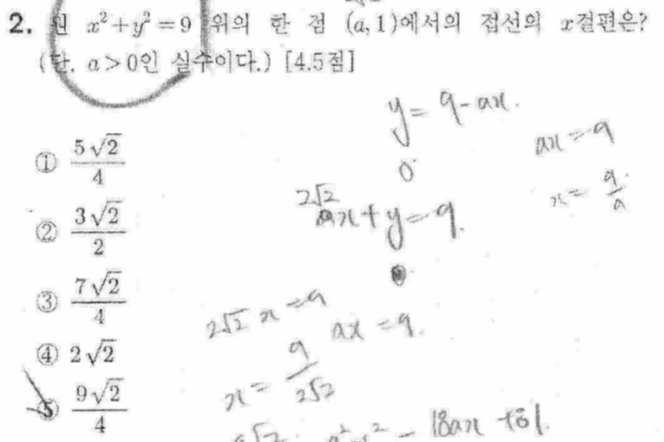 2. 원 x²+y²=9 위의 한 점 (a, 1)에서의 접선의 x절편은?
(단, a>0인 실수이다.) [4.5점]
① 5√2/4
② 3√2/2
③ 7√2/4
④ 2√2
⑤ 9√2/4
y = 9-ax.
0
ax=9
x = 9/a
2√2
ax+y=9.
2√2 x = 9
ax = 9.
x = 9/2√2
- 18ax +81.